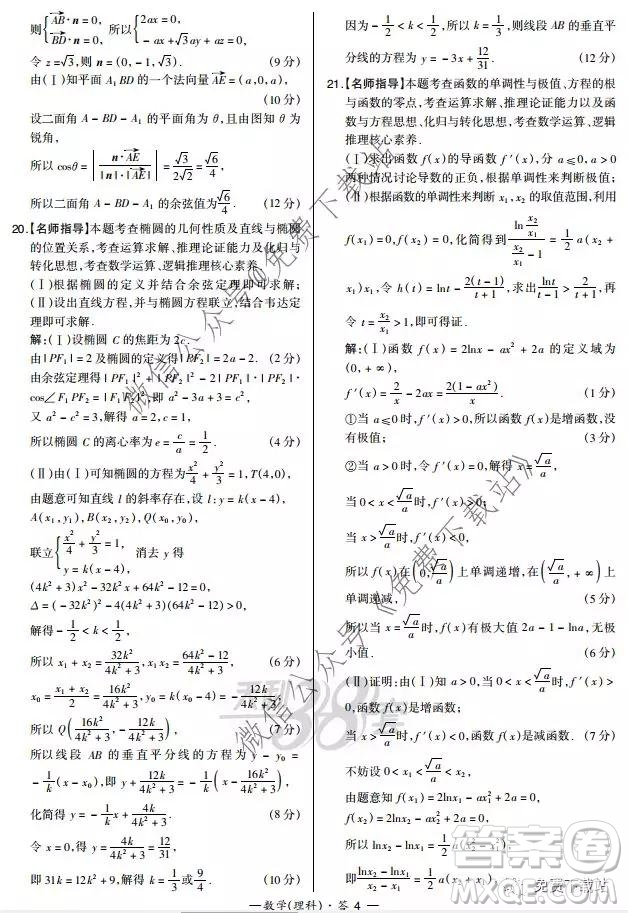 则{AB·n=0, BD·n=0, 所以{2ax=0, -ax+√3ay+az=0,
令z=√3,则n=(0,-1,√3). (9分)
由(Ⅰ)知平面A₁BD的一个法向量AE=(a,0,a),
(10分)
设二面角A-BD-A₁的平面角为θ,且由图知θ为
锐角,
所以cosθ=|n·AE/|n|·|AE||=√3/2√2=√6/4,
所以二面角A-BD-A₁的余弦值为√6/4. (12分)
20.【名师指导】本题考查椭圆的几何性质及直线与椭圆
的位置关系,考查运算求解、推理论证能力及化归与
转化思想,考查数学运算、逻辑推理核心素养.
(Ⅰ)根据椭圆的定义并结合余弦定理即可求解;
(Ⅱ)设出直线方程,并与椭圆方程联立,结合韦达定
理即可求解.
解:(Ⅰ)设椭圆C的焦距为2c.
由|PF₁|=2及椭圆的定义得|PF₂|=2a-2. (2分)
由余弦定理得|PF₁|²+|PF₂|²-2|PF₁|·|PF₂|·
cos∠F₁PF₂=|F₁F₂|²,即a²-3a+3=c²,
又a²-c²=3,解得a=2,c=1,
所以椭圆C的离心率为e=c/a=1/2. (4分)
(Ⅱ)由(Ⅰ)可知椭圆的方程为x²/4+y²/3=1,T(4,0),
由题意可知直线l的斜率存在,设l:y=k(x-4),
A(x₁,y₁),B(x₂,y₂),Q(x₀,y₀),
联立{x²/4+y²/3=1, y=k(x-4), 消去y得
(4k²+3)x²-32k²x+64k²-12=0,
Δ=(-32k²)²-4(4k²+3)(64k²-12)>0,
解得-1/2<k<1/2,
所以x₁+x₂=32k²/4k²+3,x₁x₂=64k²-12/4k²+3, (6分)
x₀=x₁+x₂/2=16k²/4k²+3,y₀=k(x₀-4)=-12k/4k²+3,
所以Q(16k²/4k²+3,-12k/4k²+3), (7分)
所以线段AB的垂直平分线的方程为y-y₀=
-1/k(x-x₀),即y+12k/4k²+3=-1/k(x-16k²/4k²+3),
化简得y=-1/k x+4k/4k²+3. (8分)
令x=0,得y=4k/4k²+3=12/31,
即31k=12k²+9,解得k=1/3或9/4. (10分)
因为-1/2<k<1/2,所以k=1/3,则线段AB的垂直平
分线的方程为y=-3x+12/31. (12分)
21.【名师指导】本题考查函数的单调性与极值、方程的根
与函数的零点,考查运算求解、推理论证能力以及函
数与方程思想、化归与转化思想,考查数学运算、逻辑
推理核心素养.
(Ⅰ)求出函数f(x)的导函数f′(x),分a≤0,a>0
两种情况讨论导数的正负,根据单调性来判断极值;
(Ⅱ)根据函数的单调性来判断x₁,x₂的取值范围,利用
f(x₁)=0,f(x₂)=0,化简得到ln x₂/x₁/x₂/x₁-1=1/2a(x₂+
x₁)x₁,令h(t)=lnt-2(t-1)/t+1,求出lnt/t-1>2/t+1,再
令t=x₂/x₁>1,即可得证.
解:(Ⅰ)函数f(x)=2lnx-ax²+2a的定义域为
(0,+∞),
f′(x)=2/x-2ax=2(1-ax²)/x. (1分)
①当a≤0时,f′(x)>0,所以函数f(x)是增函数,没
有极值; (3分)
②当a>0时,令f′(x)=0,解得x=√a/a,
当0<x<√a/a时,f′(x)>0;
当x>√a/a时,f′(x)<0,
所以f(x)在(0,√a/a)上单调递增,在(√a/a,+∞)上
单调递减, (5分)
所以当x=√a/a时,f(x)有极大值2a-1-lna,无极
小值. (6分)
(Ⅱ)证明:由(Ⅰ)知a>0,当0<x<√a/a时,f′(x)>
0,函数f(x)是增函数;
当x>√a/a时,f′(x)<0,函数f(x)是减函数. (7分)
不妨设0<x₁<√a/a<x₂,
由题意知f(x₁)=2lnx₁-ax₁²+2a=0,
f(x₂)=2lnx₂-ax₂²+2a=0,
所以lnx₂-lnx₁=1/2a(x₂²-x₁²),
即lnx₂-lnx₁/x₂-x₁=1/2a(x₂+x₁),
数学(理科)·答4
微信公众号@免费下载站
微信公众号《免费下载站》
天利38套
免费下载站